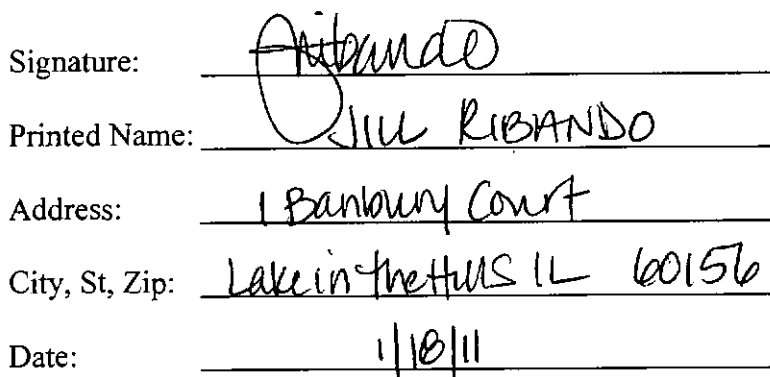 Signature: JRibando
Printed Name: JILL RIBANDO
Address: 1 Banbury Court
City, St, Zip: Lake in the Hills IL 60156
Date: 1/18/11